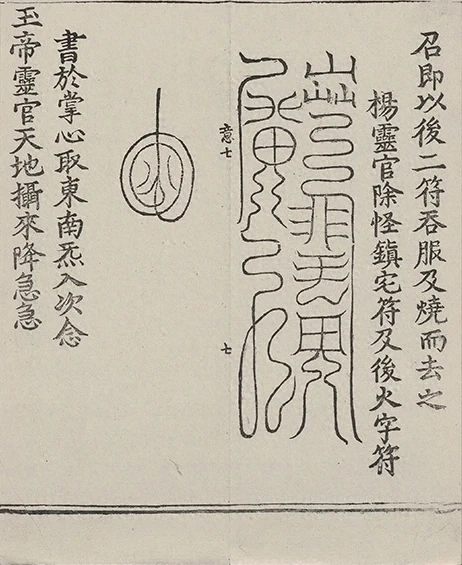 召即以後二符吞服及燒而去之
楊靈官除怪鎮宅符及後火字符
意七
七
書於掌心取東南炁入次念
玉帝靈官天地攝來降急急